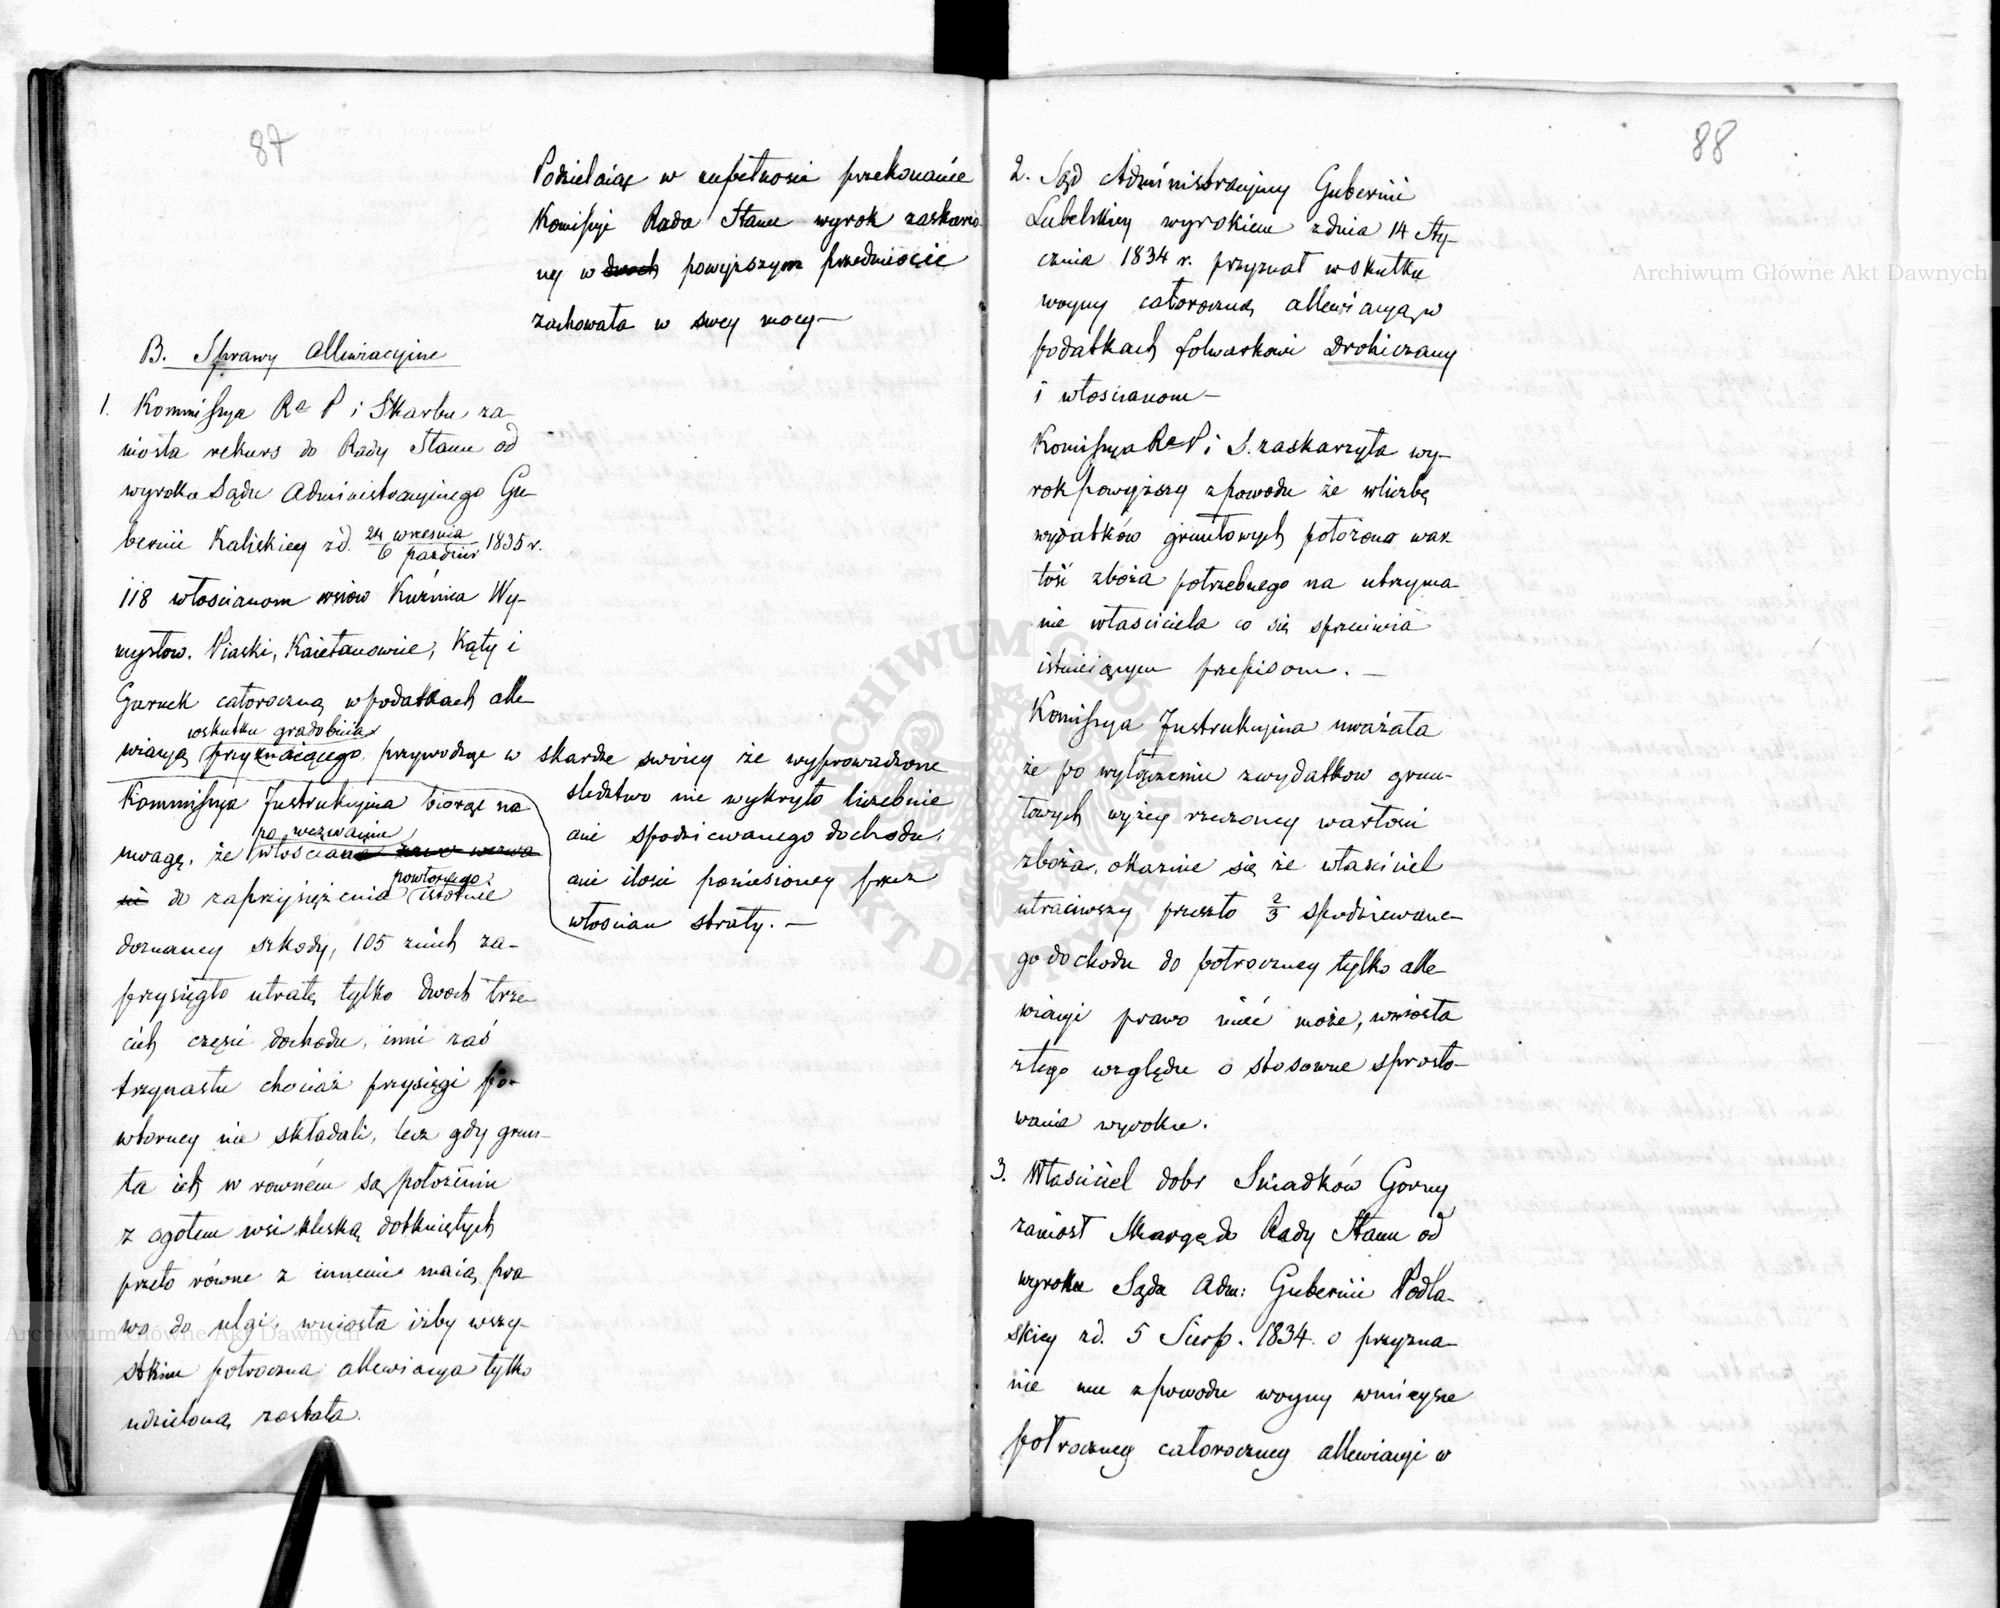 87
Podzielaiąc w zupełnosci przekonanie
Komissyi Rada Stanu wyrok zaskarżo-
ny w dwoch powyższym przedmiocie
zachowała w swey mocy—
B. Sprawy allewiacyjne
1. Kommissya R P i Skarbu za-
niosła rekurs do Rady Stanu od
wyroku Sądu Administracyjnego Gu-
bernii Kaliskiey z d. 24 wresnia / 6 paździer 1835 r.
118 włoscianom wsiow Kuźnica Wy-
mysłow. Piaski, Kaietanowice, Kąty i
Garnek całoroczną w podatkach alle-
wskutku gradobicia
wiacyą przyznaiącego przywodząc w skardze swoiey że wyprowadzone
sledztwo nie wykryło liczebnie
ani spodziewanego dochodu,
ani ilosci poniesioney przez
włoscian straty. —
Kommissya Instrukcyjna biorąc na
po wezwaniu
uwagę, że włoscian
do zaprzysiężenia istotnie
powtornego
doznaney szkody, 105 z nich za-
przysięgło utratę tylko dwoch trze-
cich części dochodu, inni zaś
trzynastu chociaż przysięgi po-
wtorney nie składali, lecz gdy grun-
ta ich w rowném są położeniu
z ogołem wsi klęską dotkniętych
przeto rowne z innemi maią pra-
wo do ulgi, wniosła iżby wszy-
stkim połroczna allewiacya tylko
udzieloną została.
88
2. Sąd Administracyjny Gubernii
Lubelskiey wyrokiem z dnia 14 Sty-
cznia 1834 r. przyznał w skutku
woyny całoroczną allewiacyą w
podatkach folwarkowi Drohiczany
i włoscianom —
Komissya R P i S. zaskarżyła wy-
rok powyższy z powodu że w liczbę
wydatków gruntowych położona war-
tość zboża potrzebnego na utrzyma-
nie własciciela co się sprzeciwia
istnieiącym przepisom. —
Komissya Instrukcyjna uważała
że po wyłączeniu z wydatkow grun-
towych wyżey rzeczoney wartosci
zboża, okazuie się że własciciel
utraciwszy przeszło 2/3 spodziewane-
go dochodu do połroczney tylko alle-
wiacyi prawo mieć może, wniosła
z tego względu o stosowne sprosto-
wanie wyroku.
3. Własciciel dobr Sniadków Gorny
zaniosł Skargę do Rady Stanu od
wyroku Sądu Adm: Gubernii Podla-
skiey z d. 5 Sierp. 1834. o przyzna-
nie mu z powodu woyny w mieysce
połroczney całoroczney allewiacyi w
Archiwum Główne Akt Dawnych
Archiwum Główne Akt Dawnych
ARCHIWUM GŁÓWNE AKT DAWNYCH